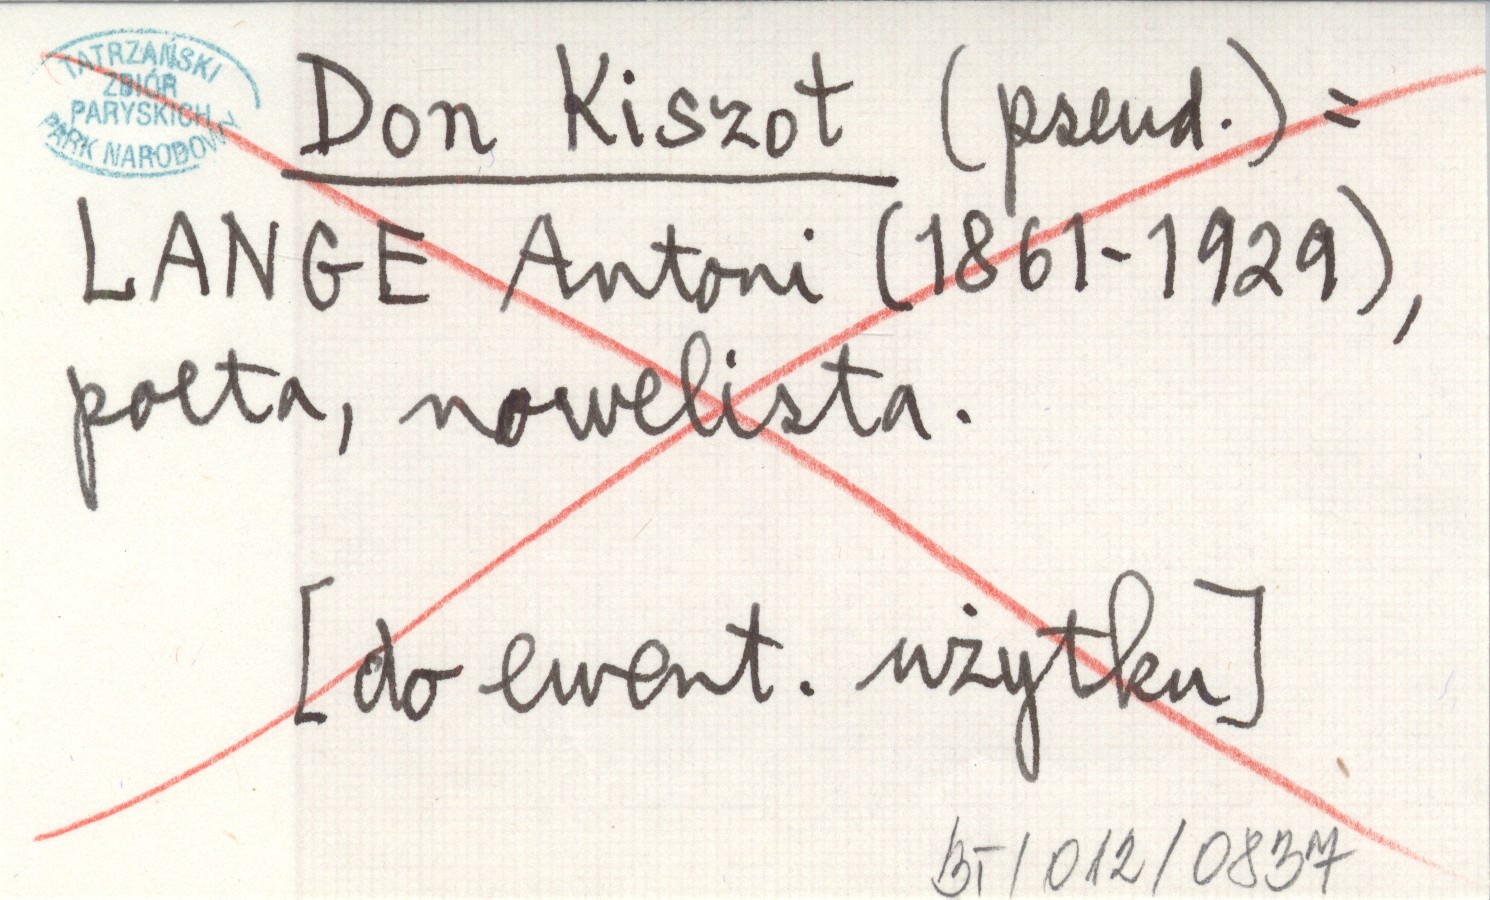 TATRZAŃSKI
ZBIÓR
PARYSKICH
PARK NARODOWY
Don Kiszot (pseud.) =
LANGE Antoni (1861-1929),
poeta, nowelista.
[do ewent. użytku]
BT/012/0837